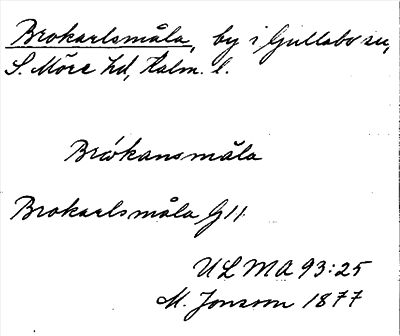 Brokarlsmåla, by i Gullabo sn,
S. Möre hd, Kalm. l.
Brókansmåla
Brokarlsmåla G11
ULMA 93:25
M. Jonson 1877